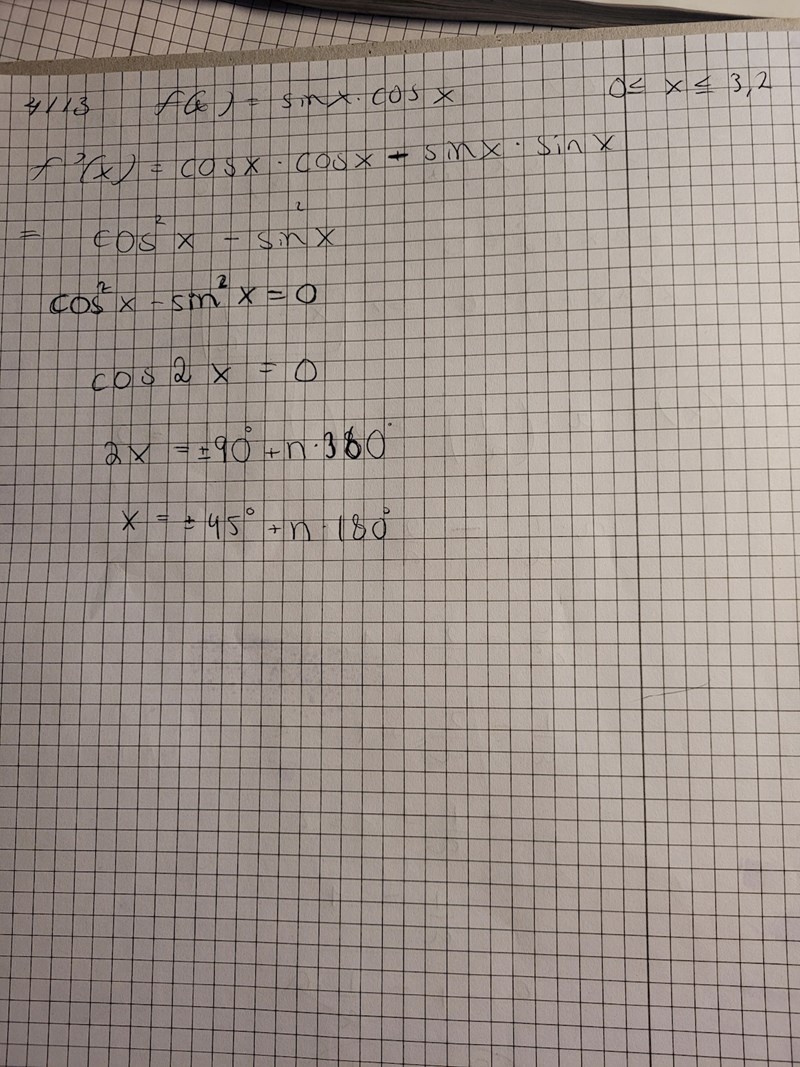 4113 f(x) = sinx · cos x 0 ≤ x ≤ 3,2
f'(x) = cosx · cosx - sinx · sinx
= cos²x - sin²x
cos²x - sin²x = 0
cos 2x = 0
2x = ±90° + n·360°
x = ±45° + n·180°